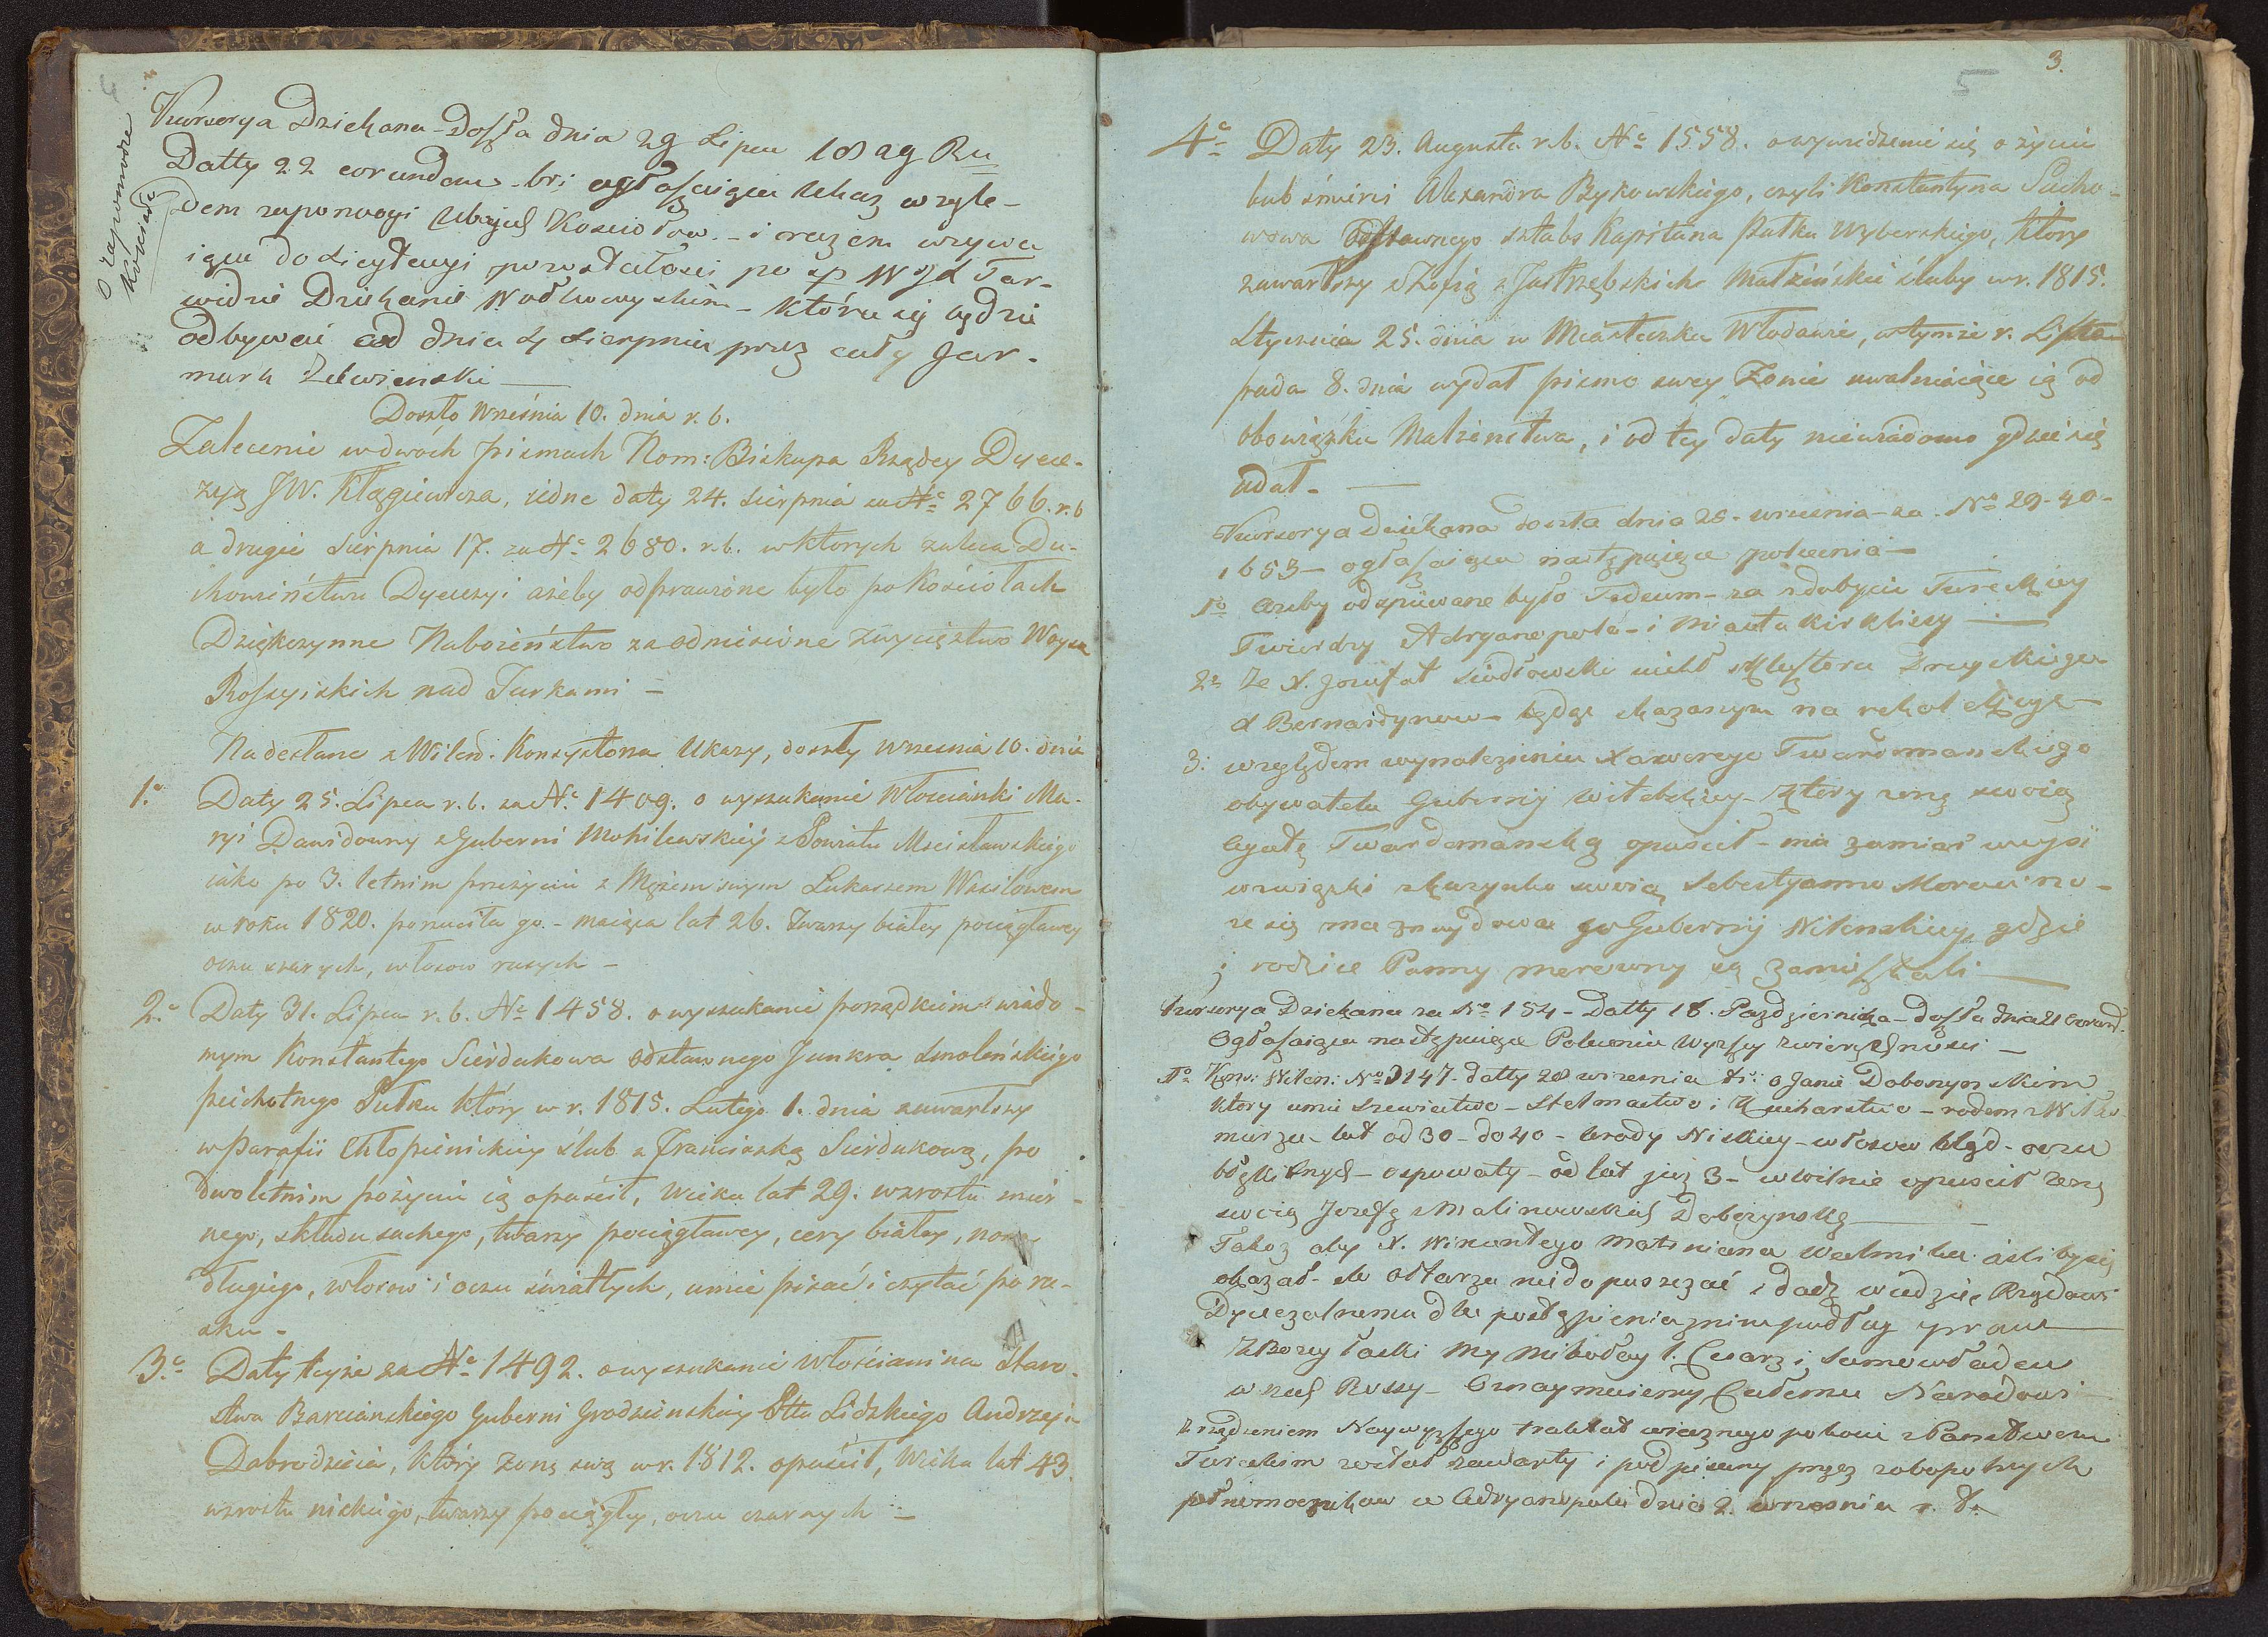 O zapomodze
Kościoła
Kursorya Dziekana doszła dnia 29 Lipca 1829 Ru
Datty 22 eorundem br: ogłaszaiąca Ukaz wzglę-
dem zapomogi Ubogich Kosciołow - i orazem wzywa
iąca do Licytacyi pozostałosci po śp
widzie Dziekanie Wołkowyskim - która się będzie
odbywać od dnia 4 Sierpnia przez cały Jar-
mark Zelwienski
Doszło Września 10. dnia r. b.
Zalecenie w dwóch pismach Nom: Biskupa Rządcy Dyece-
zyą JW. Kłągiewicza, iedne daty 24. Sierpnia za No 2766. r. b
a drugie Sierpnia 17. za No 2680. r. b. w ktorych zaleca Du-
chowieństwu Dyecezyi ażeby odprawione było po Kościołach
Dziękczynne Nabożeństwo za odniesione zwycięztwo Woysk
Rossyiskich nad Turkami =
Nadesłane z Wileń. Konsystorza Ukazy, doszły Wrzesnia 10. dnia
1.o Daty 25. Lipca r. b. za No 1409. o wyszukanie Włościanki Ma-
ryi Dawidowny z Guberni Mohilewskiej z Powiatu Mscisławskiego
iako po 3. letnim pożyciu z Mężem swym Łukaszem Wasilowem
w roku 1820. porzuciła go - maiąca lat 26. twarzy białey pociągławey
oczu szarych, włosow rusych -
2.o Daty 31. Lipca r. b. No 1458. o wyszukanie porządkiem wiado-
mym Konstantego Sierdukowa odstawnego Junkra Smoleńskiego
piechotnego Pułku który w r. 1815. Lutego 1. dnia zawartszy
w Parafii Chłopienickiey ślub z Franciszką Sierdukową, po
dwoletnim pożyciu ią opuścił, Wieku lat 29. wzrostu mier-
nego, składu suchego, twarzy pociągławey, cery białey, nosa
długiego, włosow i oczu światłych, umie pisać i czytać po ru-
sku -
3.o Daty teyże za No 1492. o wyszukanie Włościanina Staro-
stwa Barciańskiego Guberni Grodzieńskiey Pttu Lidzkiego Andrzeja
Dabrodzieia, który żonę swą w r. 1812. opuścił, Wieku lat 43.
wzrostu niskiego, twarzy pociągłey, oczu czarnych =
3.
5
4o Daty 23. Augusta r. b. No 1558. o wywiedzenie się o życiu
lub śmierci Alexandra Bykowskiego, czyli Konstantyna Sucho-
wowa odstawnego sztabs Kapitana Pułku Wyborskiego, który
zawartszy z Zofią z Jastrzębskich Małżeńskie śluby w r. 1815.
Stycznia 25. dnia w Miasteczku Włodawie, w tymże r. Listo-
pada 8. dnia wydał pismo swey Żonie uwalniaiące ią od
obowiązku Małżeństwa, i od tey daty niewiadomo gdzie się
udał -
Kursorya Dziekana doszła dnia 25 - wrzesnia - za No 29-40-
1653 - ogłaszaiąca następuiące polecenia -
1o Ażeby odspiewane było Tedeum - za zdobycie Tureckiey
Twierdzy Adryanopola - i Miasta Kirkliessy
2o Że X. Jozafat Siodłowski
d Bernardynow - będąc skazanym na rekolekcye -
3: względem wynalezienia Xawerego Twardomanskiego
obywatela Gubernij Witebskiey - który żonę swoią
Agatę Twardomanską opuscił - ma zamiar weysć
w związki z kuzynką swoią Sebestyanną
że się ma znaydować w Gubernij Wilenskiey gdzie
i rodzice Panny są zamieszkali
Kursorya Dziekana za No 154 - Datty 18. Pazdziernika - doszła dnia 21 eorund.
Ogłaszaiąca następuiące Polecenia Wyższey zwierzchności -
1o Kons: Wilen: No 3147. datty 28 wrzesnia br: o Janie Dobożynskim
ktory umie Szewiectwo - Stelmastwo i Kucharstwo - rodem z
lat od 30 - do 40 - urody Niskiey - włosow bląd - oczu
błękitnych - ospowaty - od lat już 3 - w Wilnie opuscił żonę
swoią Jozefę z Malinowskich Dobożynską
Takoż aby X. Wincentego ieśli by się
okazał - do Ołtarza nie dopuszczać i dadź wiedzieć Rządowi
Dyecezalnemu dla postąpienia z nim podług praw
Z Bożey łaski My Mikołay 1. Cesarz i Samowładca
wszech Rossy - Oznaymuiemy Całemu Narodowi
Zrządzeniem Naywyższego traktat wiecznego pokoiu z Panstwem
Tureckim został zawarty i podpisany przez obopolnych
pełnomocnikow w Adryanopolu dnia 2. wrzesnia r. b.